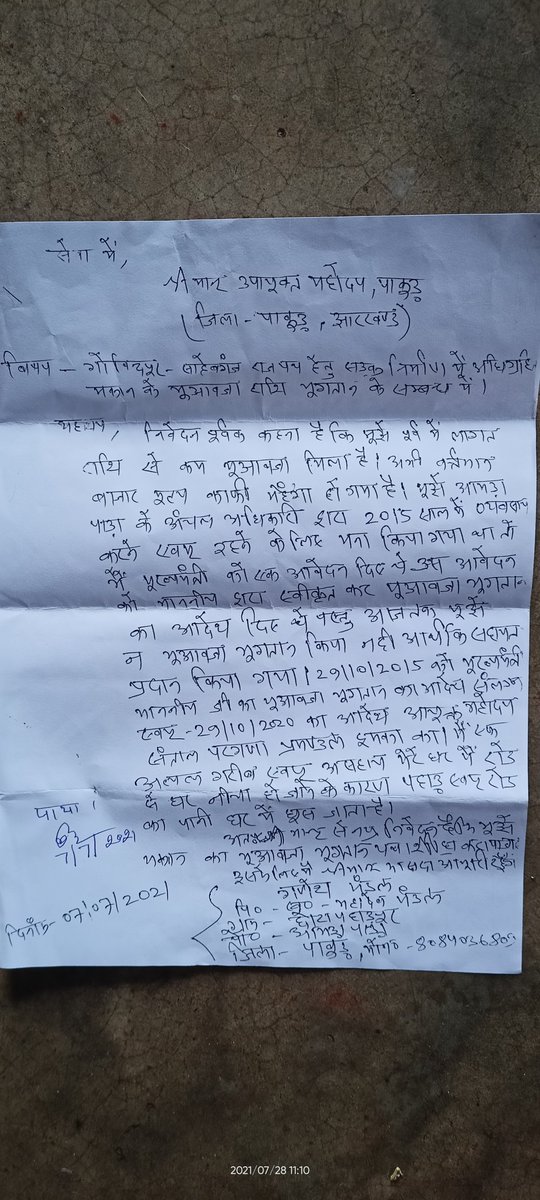 सेवा में,
श्रीमान उपायुक्त महोदय, पाकुड़
(जिला - पाकुड़, झारखण्ड)
विषय - गोविन्दपुर - साहेबगंज राजपथ हेतु सड़क निर्माण में अधिग्रहित
मकान के मुआवजा राशि भुगतान के सम्बन्ध में।
महाशय, निवेदन पूर्वक कहना है कि मुझे पूर्व में लागत
राशि से कम मुआवजा मिला है। अभी वर्तमान
बाजार मूल्य काफी मंहगा हो गया है। मुझे आमड़ा
पाड़ा के अंचल अधिकारी द्वारा 2015 साल में व्यवसाय
करने एवम् रहने के लिए मना किया गया था तो
मैं मुख्यमंत्री को एक आवेदन दिए थे उस आवेदन
को माननीय द्वारा स्वीकृत कर मुआवजा भुगतान
का आदेश दिए थे परन्तु आजतक मुझे
न मुआवजा भुगतान किया नही आर्थिक सहायता
प्रदान किया गया। 29/10/2015 को मुख्यमंत्री
माननीय श्री का मुआवजा भुगतान का आदेश संलग्न
एवम् - 29/10/2020 का आदेश आयुक्त महोदय
संताल परगणा प्रमण्डल दुमका का। मैं एक
अत्यन्त गरीब एवम् असहाय मेरे घर में रोड
से घर नीचा हो जाने के कारण पहाड़ एवम् रोड
का पानी घर में घुस जाता है।
अतः श्रीमान् से नम्र निवेदन है कि मुझे
मकान का मुआवजा भुगतान
इसके लिए मैं श्रीमान का सदा आभारी रहूँगा
पाया।
7/7/2021
दिनांक - 07/07/2021
गणेश मंडल
पि० - स्व० - महादेव मंडल
ग्राम -
जिला - पाकुड़, मो०न० - 8084036809
2021/07/28 11:10